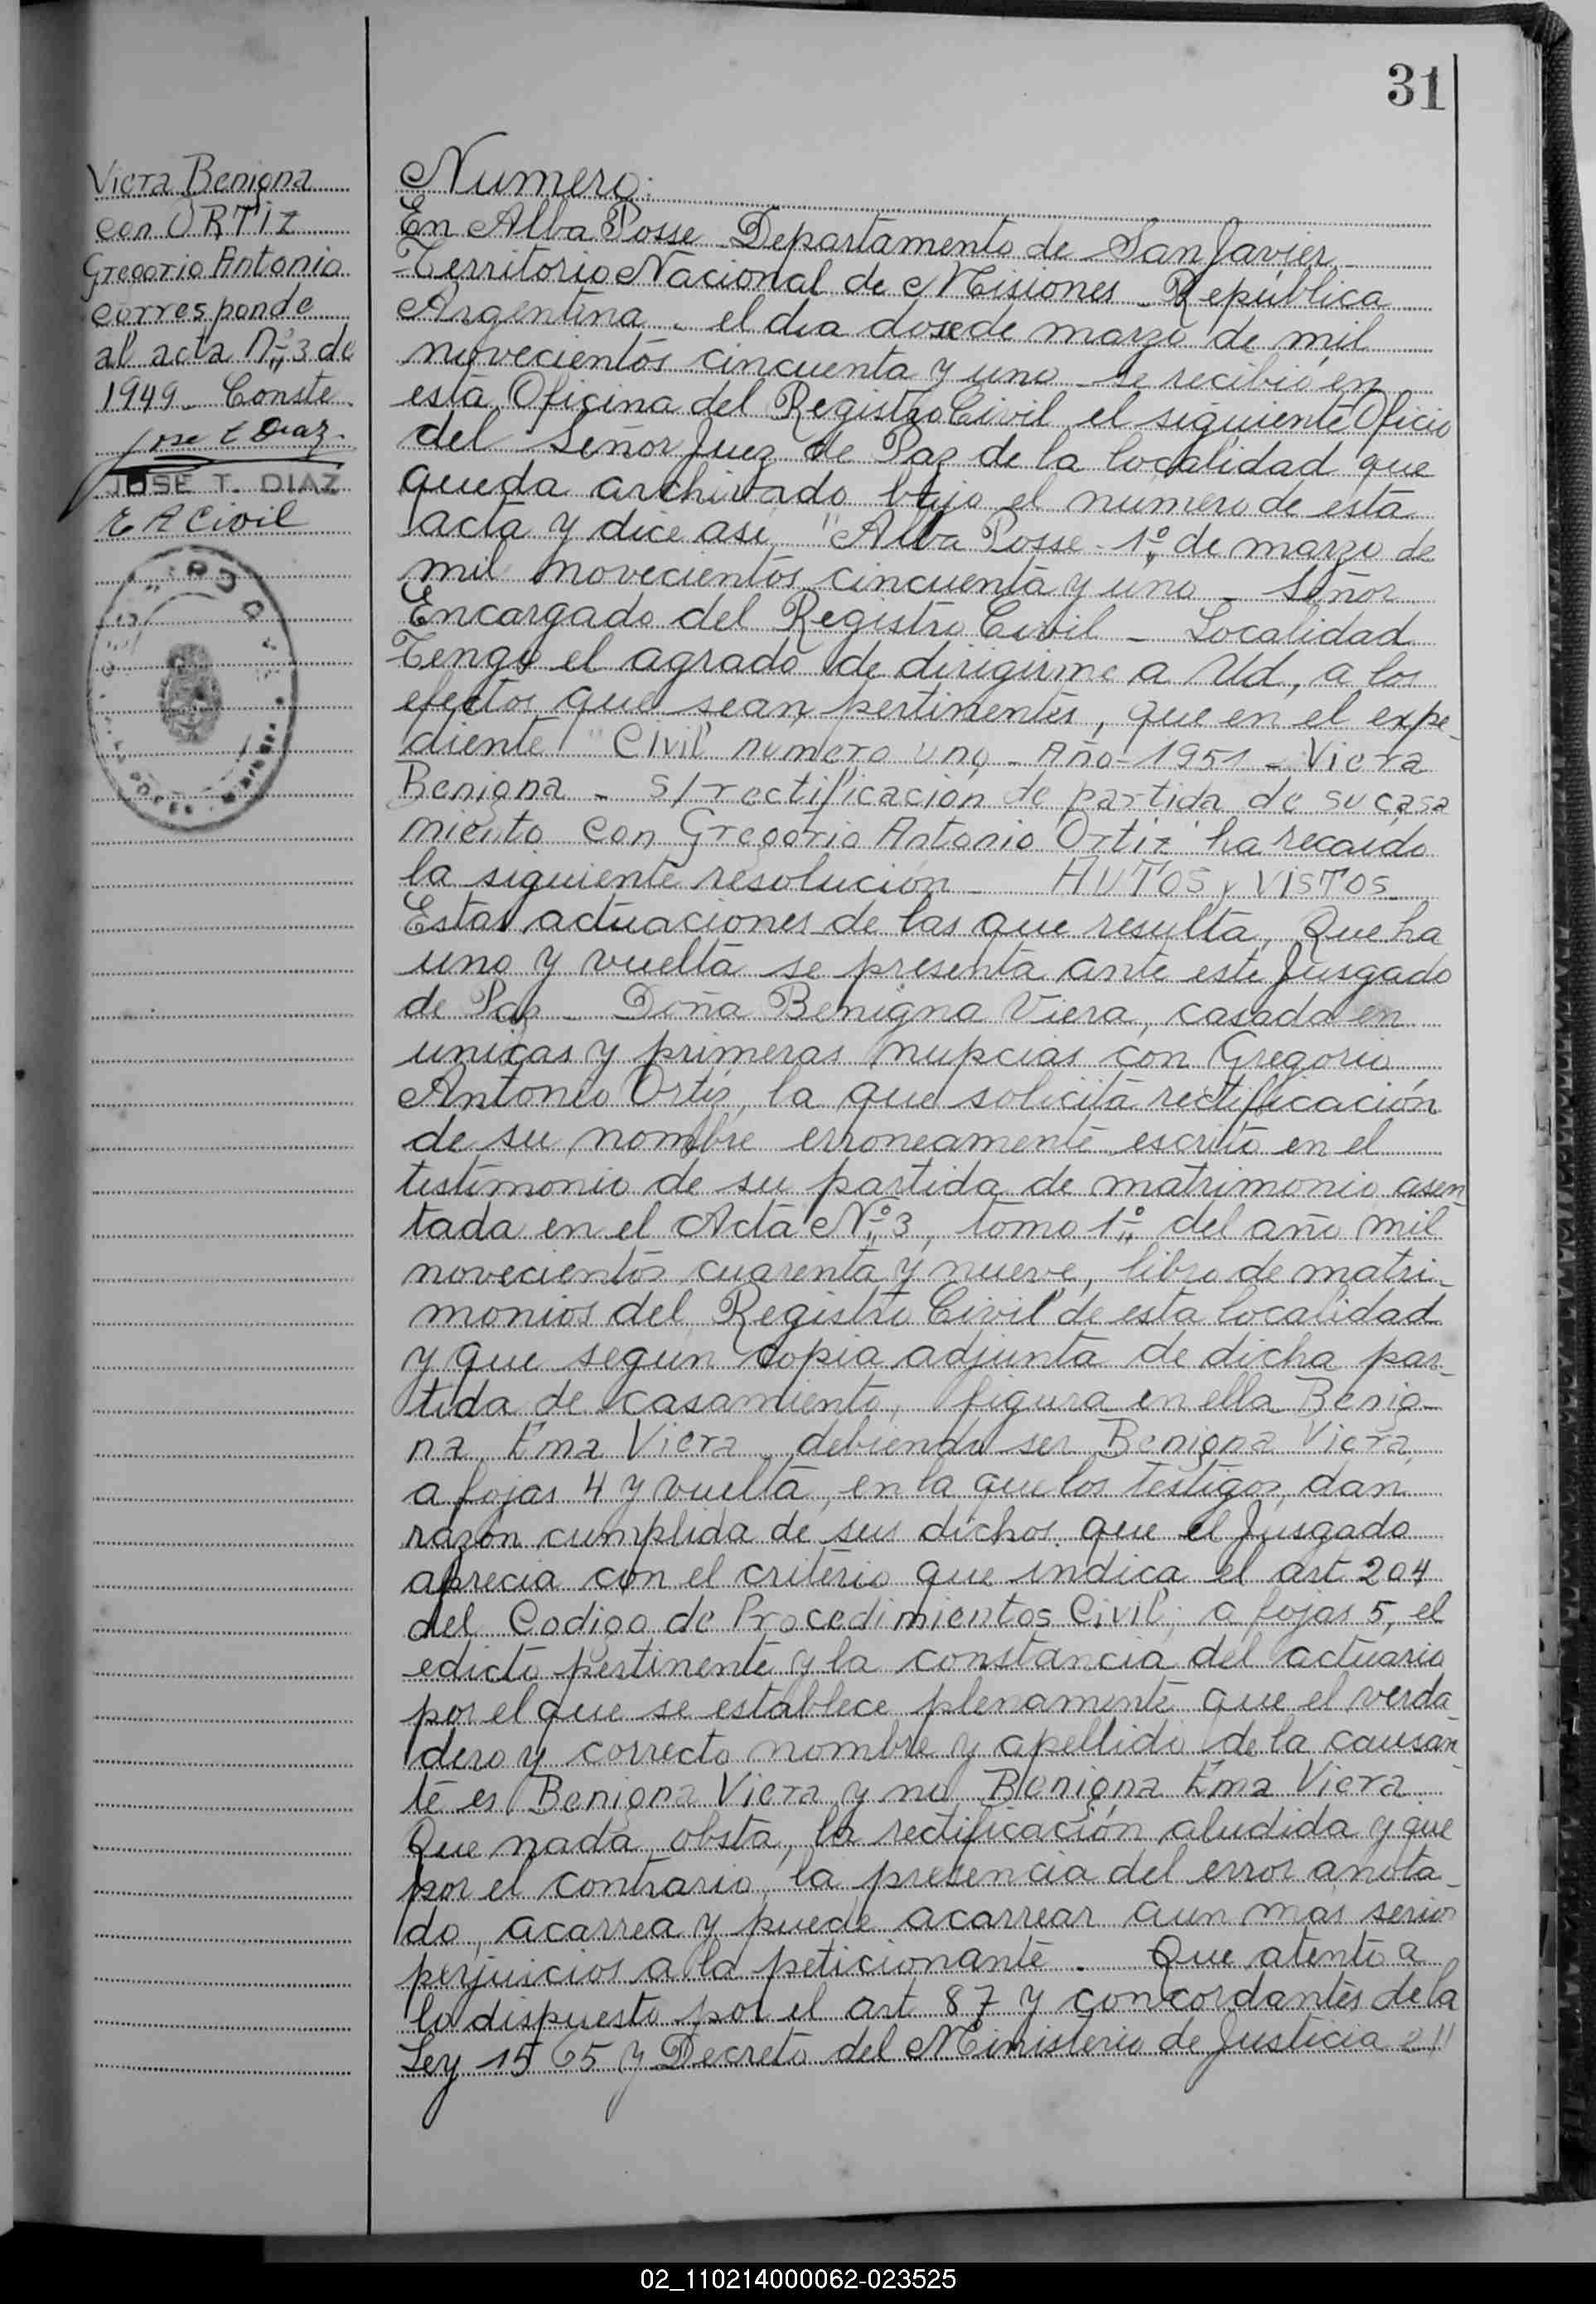 31
Viera Benigna
con ORTIZ
Gregorio Antonio
corresponde
al acta Nº 3 de
1949. Conste.
Jose T Diaz
JOSE T. DIAZ
E R Civil
Numero:
En Alba Posse Departamento de San Javier
Territorio Nacional de Misiones - República
Argentina - el dia doce de marzo de mil
novecientos cincuenta y uno se recibió en
esta Oficina del Registro Civil el siguiente Oficio
del Señor Juez de Paz de la localidad que
queda archivado bajo el número de esta
acta y dice asi, "Alba Posse - 1º de marzo de
mil novecientos cincuenta y uno - Señor
Encargado del Registro Civil - Localidad
Tengo el agrado de dirigirme a Ud, a los
efectos que sean pertinentes, que en el expe-
diente "Civil número uno - Año - 1951 - Viera
Benigna - s/rectificación de partida de su casa
miento con Gregorio Antonio Ortiz" ha recaido
la siguiente resolución - AUTOS y VISTOS
Estas actuaciones de las que resulta, Que ha
uno y vuelta se presenta ante este Jusgado
de Paz - Doña Benigna Viera, casada en
unicas y primeras nupcias con Gregorio
Antonio Ortiz, la que solicita rectificación
de su nombre erroneamente escrito en el
testimonio de su partida de matrimonio asen
tada en el Acta Nº 3, tomo 1º del año mil
novecientos cuarenta y nueve, libro de matri-
monios del Registro Civil de esta localidad
y que segun copia adjunta de dicha par-
tida de casamiento, figura en ella Benig-
na Ema Viera debiendo ser Benigna Viera,
a fojas 4 y vuelta, en la que los testigos dan
razón cumplida de sus dichos que el Jusgado
aprecia con el criterio que indica el art 204
del Codigo de Procedimientos Civil; a fojas 5, el
edicto pertinente y la constancia del actuario
por el que se establece plenamente que el verda
dero y correcto nombre y apellido de la causan
te es Benigna Viera y no Benigna Ema Viera
Que nada obsta, la rectificación aludida y que
por el contrario, la presencia del error anota-
do, acarrea y puede acarrear aun más serios
perjuicios a la peticionante. Que atento a
lo dispuesto por el art 87 y concordantes de la
Ley 1565 y Decreto del Ministerio de Justicia e I/
02_110214000062-023525